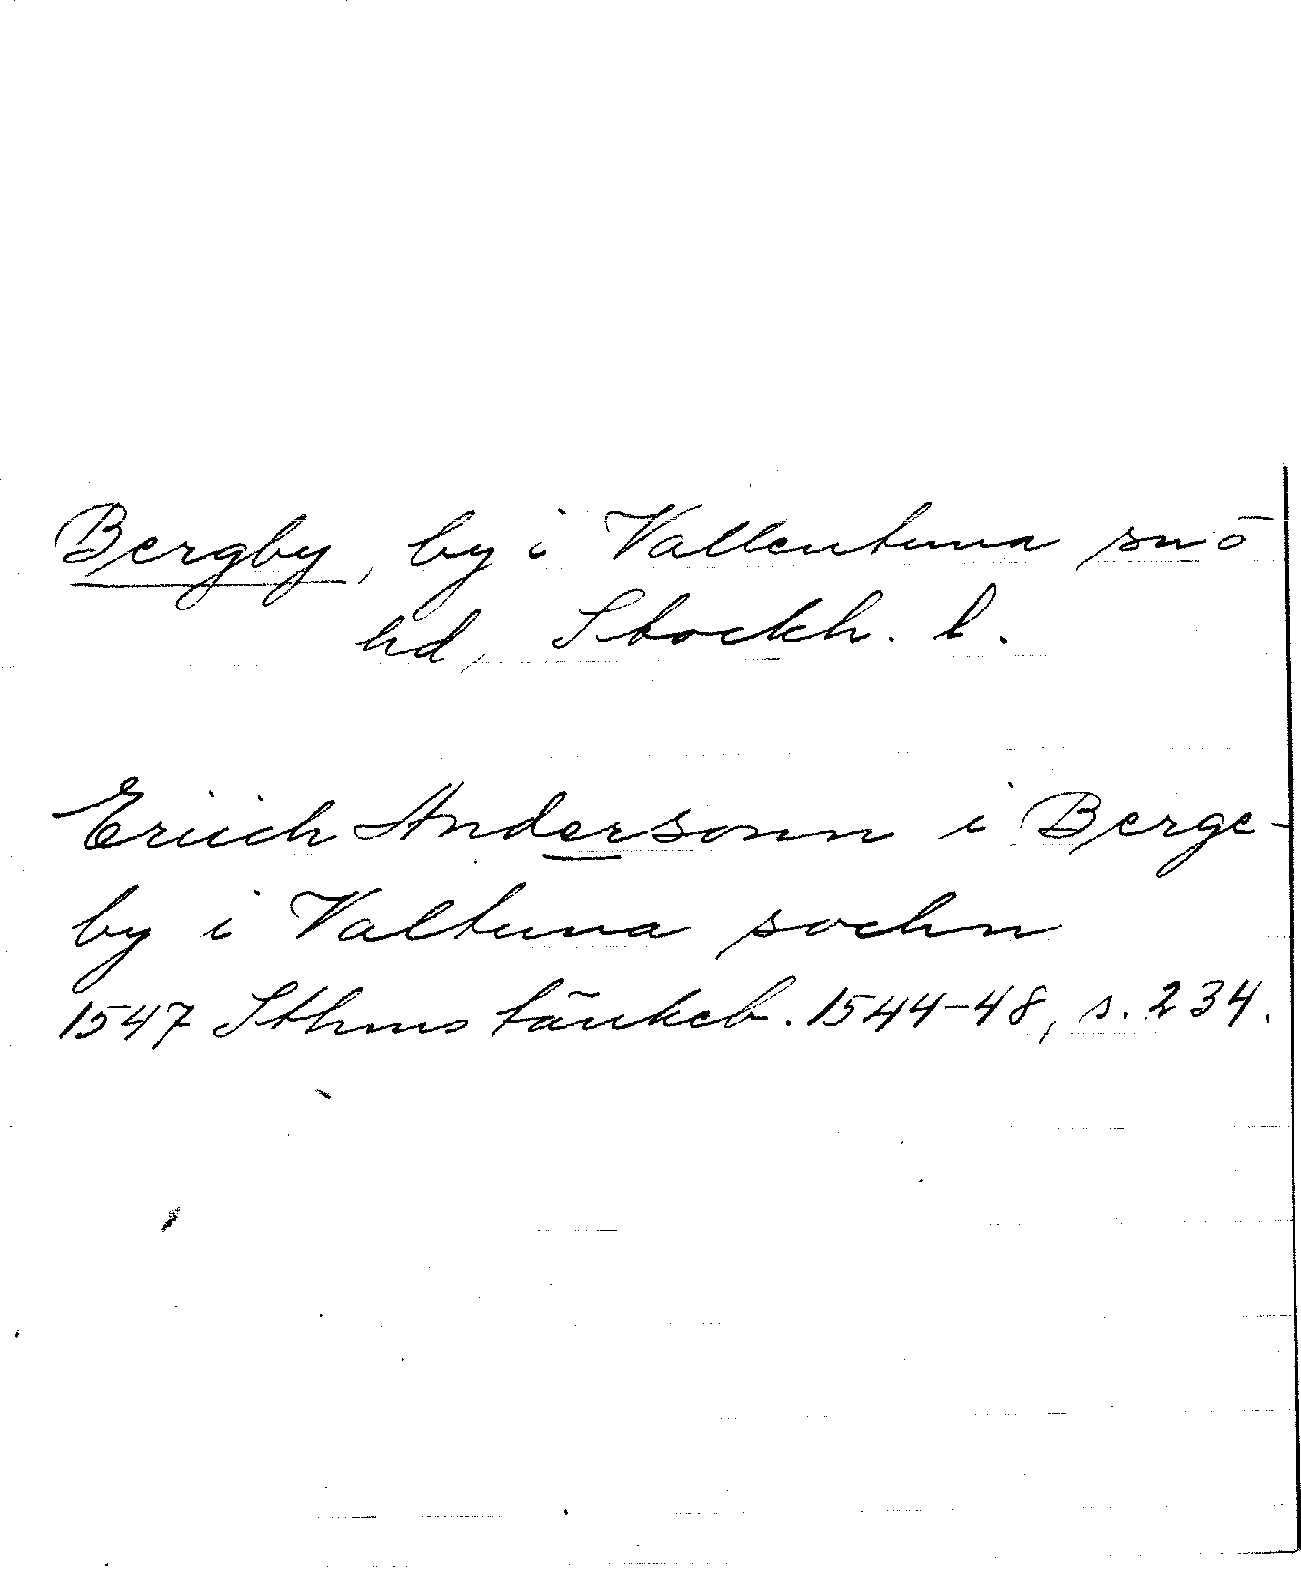 Bergby, by i Vallentuna sn o
hd, Stockh. l.
Eriich Andersonn i Berge-
by i Valtuna sochn
1547 Sthms tänkeb. 1544-48, s. 234.